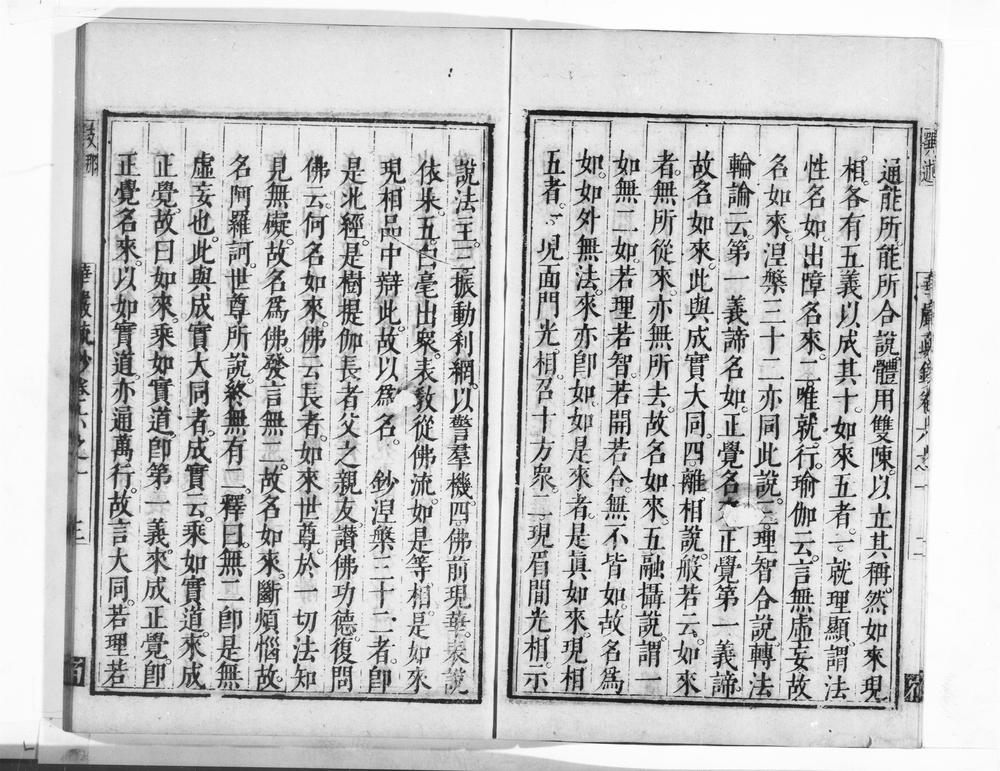 通能所。能所合說。體用雙陳。以立其稱。然如來現
相。各有五義。以成其十。如來五者。一就理顯。謂法
性名如。出障名來。二唯就行。瑜伽云。言無虛妄。故
名如來。涅槃三十二亦同此說。三理智合說。轉法
輪論云。第一義諦名如。正覺名來。正覺第一義諦。
故名如來。此與成實大同。四離相說。般若云。如來
者。無所從來。亦無所去。故名如來。五融攝說。謂一
如無二如。若理若智。若開若合。無不皆如。故名為
如。如外無法。來亦卽如。如是來者。是眞如來。現相
五者。一現面門光相。召十方衆。二現眉間光相。示
說法主。三振動剎網。以警羣機。四佛前現華。表說
依果。五白毫出衆。表敎從佛流。如是等相。是如來
現相品中辯此。故以爲名。 鈔涅槃三十二者。卽
是北經。是樹提伽長者父之親友。讚佛功德。復問
佛云。何名如來。佛云。長者。如來世尊。於一切法知
見無礙。故名爲佛。發言無二。故名如來。斷煩惱故。
名阿羅訶。世尊所說。終無有二。釋曰。無二卽是無
虛妄也。此與成實大同者。成實云。乘如實道。來成
正覺。故曰如來。乘如實道。卽第一義。來成正覺。卽
正覺名來。以如實道。亦通萬行。故言大同。若理若
支那
華嚴疏鈔卷
三